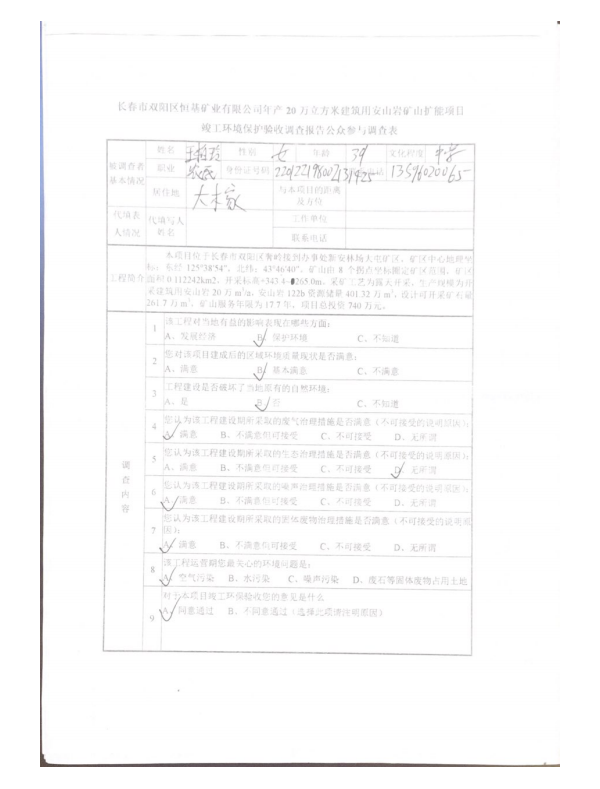 长春市双阳区恒基矿业有限公司年产 20 万立方米建筑用安山岩矿山扩能项目
竣工环境保护验收调查报告公众参与调查表
被调查者基本情况
姓名 性别 女 年龄 39 文化程度 中学
职业 农民 身份证号码
居住地 大木家 与本项目的距离及方位
代填表人情况 代填写人姓名 工作单位
联系电话
工程简介
本项目位于长春市双阳区奢岭接到办事处新安林场大屯矿区，矿区中心地理坐
标：东经 125°38′54″，北纬：43°46′40″，矿山由 8 个拐点坐标圈定矿区范围，矿区
面积 0.112242km2，开采标高+343.4-265.0m。采矿工艺为露天开采，生产规模为开
采建筑用安山岩 20 万 m³/a。安山岩 122b 资源储量 401.32 万 m³，设计可开采矿石量
261.7 万 m³，矿山服务年限为 17.7 年。项目总投资 740 万元。
调查内容
1 该工程对当地有益的影响表现在哪些方面：
A、发展经济 B、保护环境 C、不知道
2 您对该项目建成后的区域环境质量现状是否满意：
A、满意 B、基本满意 C、不满意
3 工程建设是否破坏了当地原有的自然环境：
A、是 B、否 C、不知道
4 您认为该工程建设期所采取的废气治理措施是否满意（不可接受的说明原因）：
A、满意 B、不满意但可接受 C、不可接受 D、无所谓
5 您认为该工程建设期所采取的生态治理措施是否满意（不可接受的说明原因）：
A、满意 B、不满意但可接受 C、不可接受 D、无所谓
6 您认为该工程建设期所采取的噪声治理措施是否满意（不可接受的说明原因）：
A、满意 B、不满意但可接受 C、不可接受 D、无所谓
7 您认为该工程建设期所采取的固体废物治理措施是否满意（不可接受的说明原
因）：
A、满意 B、不满意但可接受 C、不可接受 D、无所谓
8 该工程运营期您最关心的环境问题是：
A、空气污染 B、水污染 C、噪声污染 D、废石等固体废物占用土地
9 对于本项目竣工环保验收您的意见是什么
A、同意通过 B、不同意通过（选择此项请注明原因）